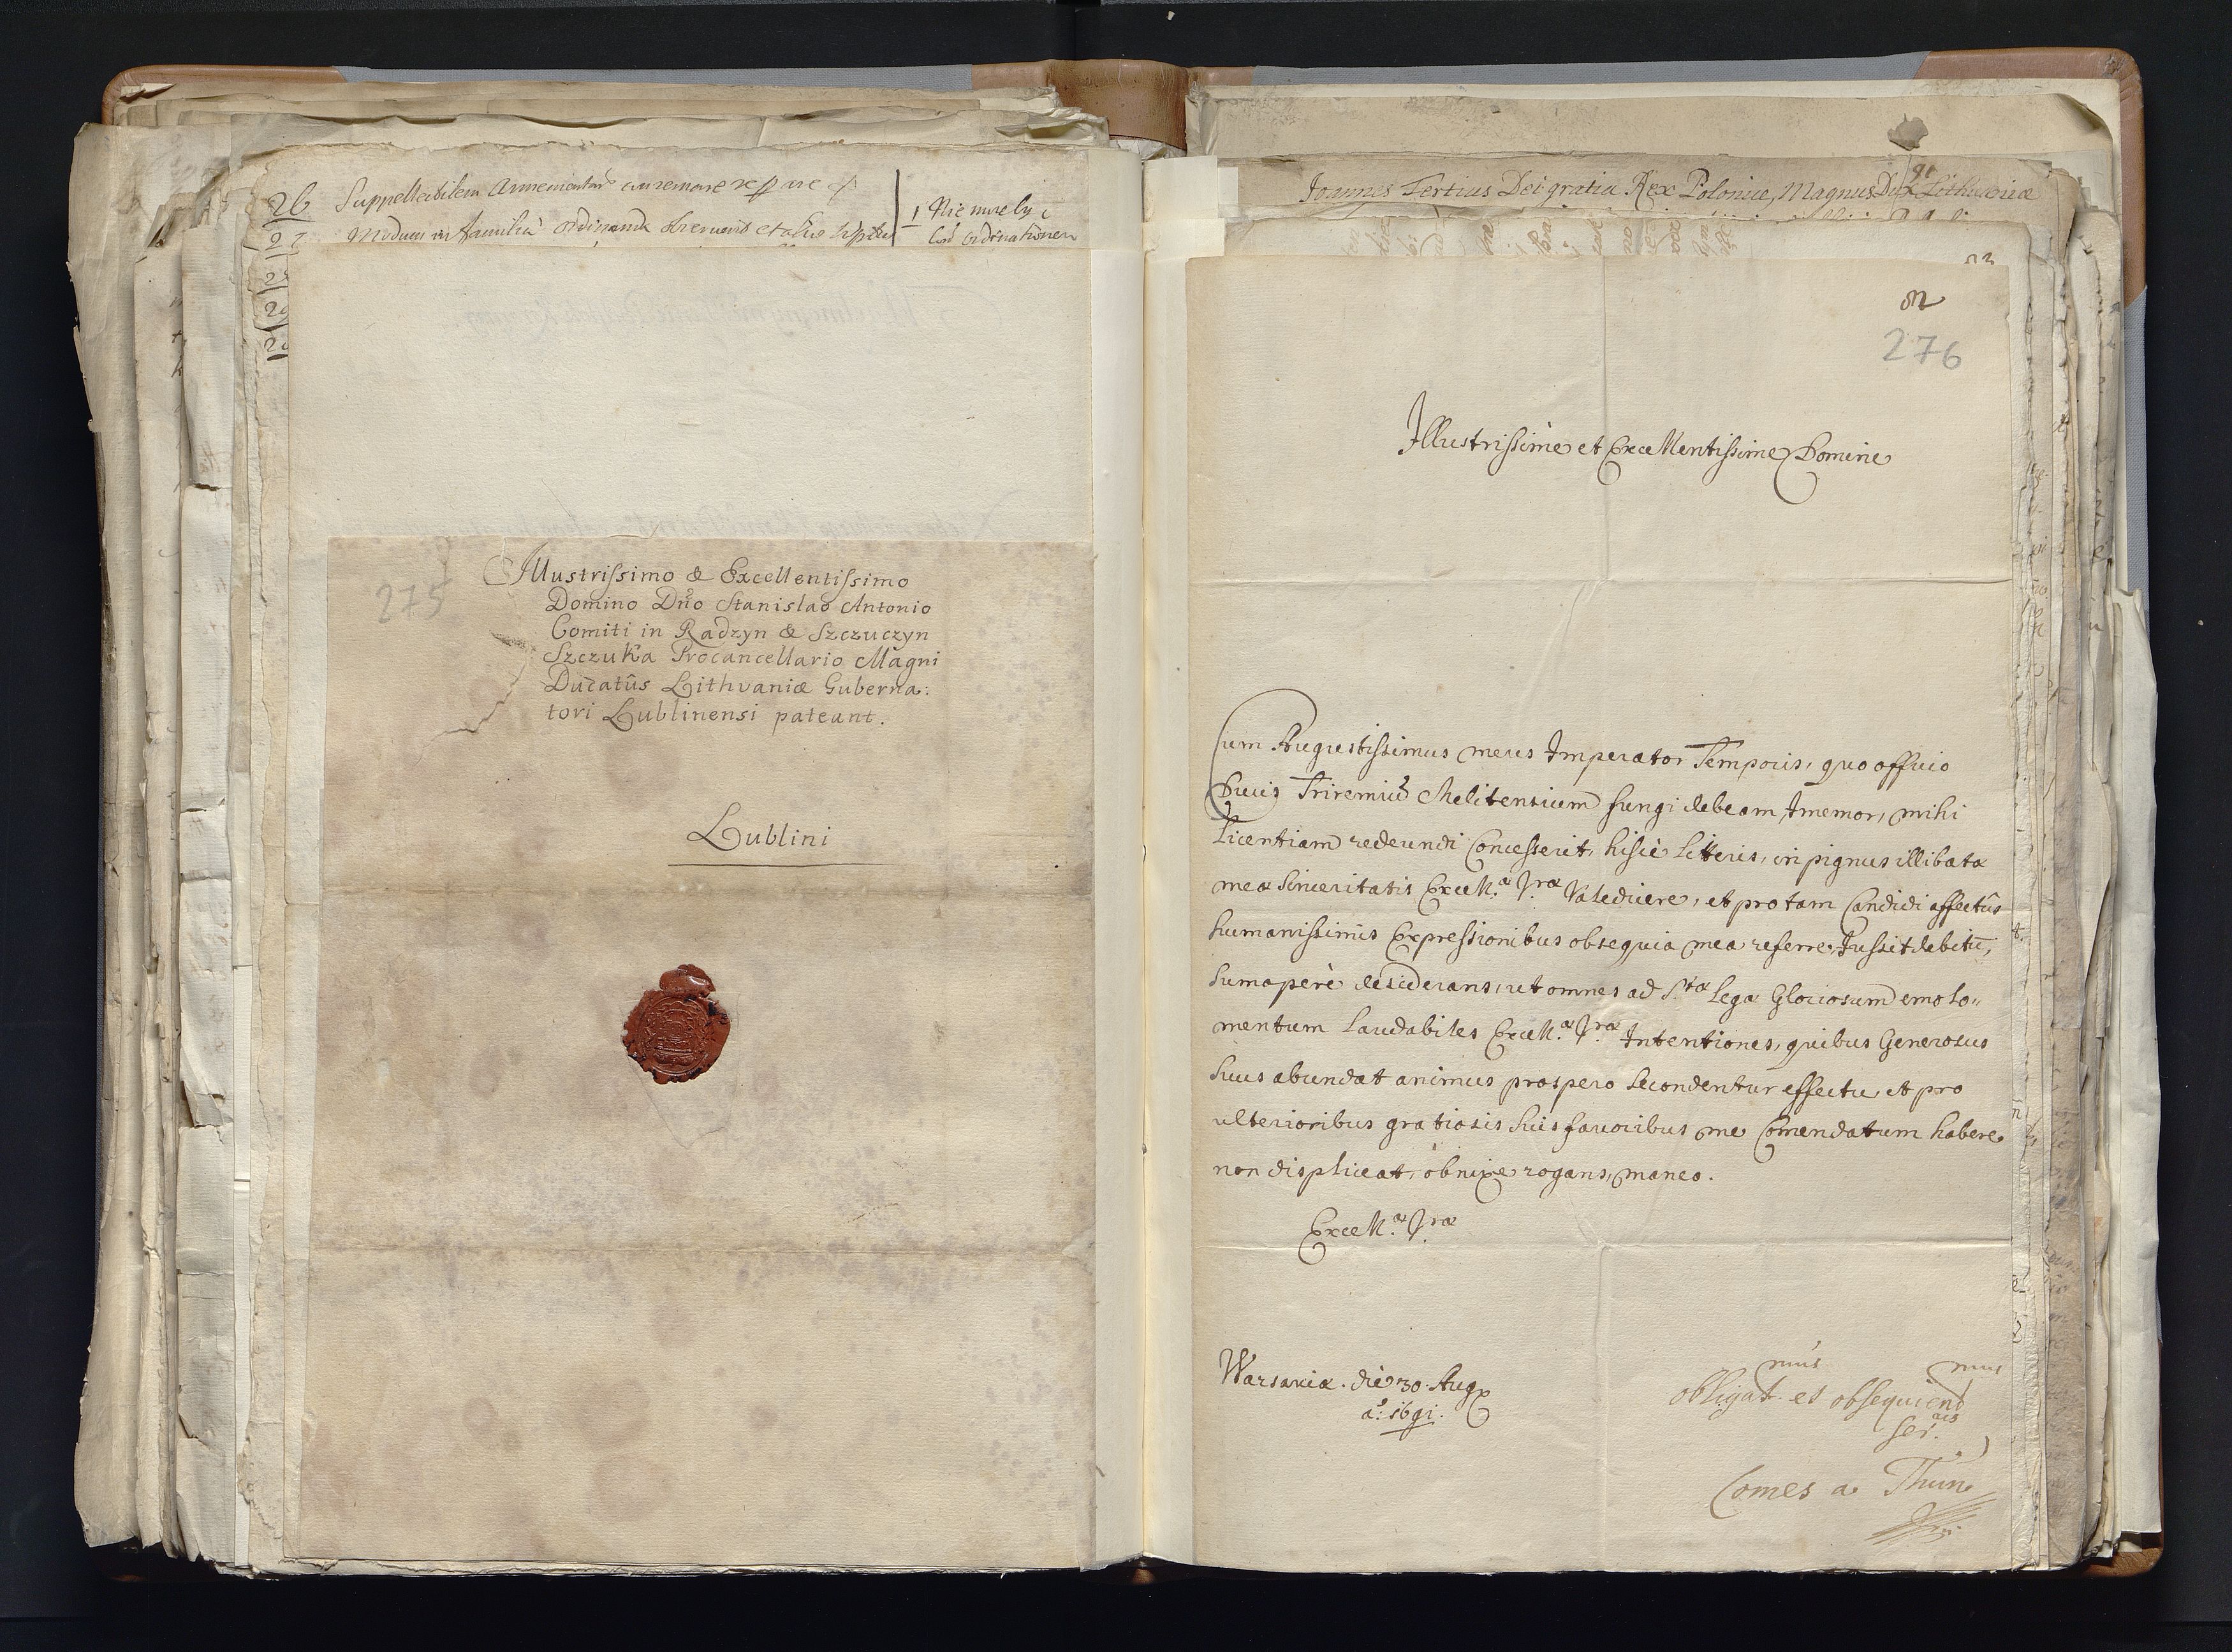 26 Suppellectilem
27 Modum in familia ordinandi
1 Nie mneley i
ordinationem
275
Illustrissimo & Excellentissimo
Domino Dno Stanislao Antonio
Comiti in Radzyn & Szczuczyn
Szczuka Procancellario Magni
Ducatûs Lithvaniæ Guberna:
tori Lublinensi pateant.
Lublini
Joannes Tertius Dei gratia Rex Poloniæ, Magnus Dux Lithuaniæ
276
Illustrissime et Excellentissime Domine
Cum Augustissimus meus Imperator Temporis, quo officio
Ducis Triremiū Melitensium fungi debeam, Imemor, mihi
Licentiam redeundi Concesserit, hisce Litteris, in pignus illibatæ
meæ Sinceritatis Excell.æ V.ræ Valedicere, et pro tam Candidi affectûs
humanissimis Expressionibus obsequia mea referre, Jussit debitū,
Sumoperè desiderans, ut omnes ad S.tæ Legæ Gloriosum emolo„
mentum Laudabiles Excell.æ V.ræ Intentiones, quibus Generosus
Suus abundat animus prospero Secondentur effectu, et pro
ulterioribus gratiosis Suis favoribus me Comendatum habere
non displiceat, obnixe rogans, maneo.
Excell.æ V.ræ
Warsaviæ. die 30. Aug
aº: 1691.
obligat.mus et obsequient.mus
Ser.
Comes a Thun